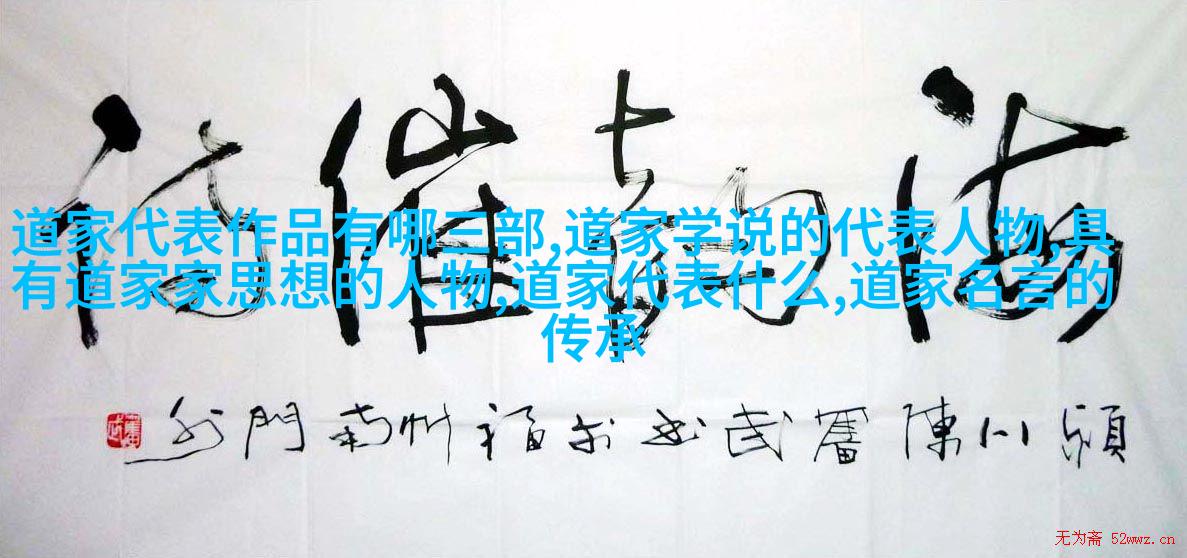 道家代表作品有哪三部,道家学说的代表人物,具
有道家家思想的人物,道家代表什么,道家名言的
传承
海 催
川陳奮武书於福州南門外
无为斋 52wwz.cn